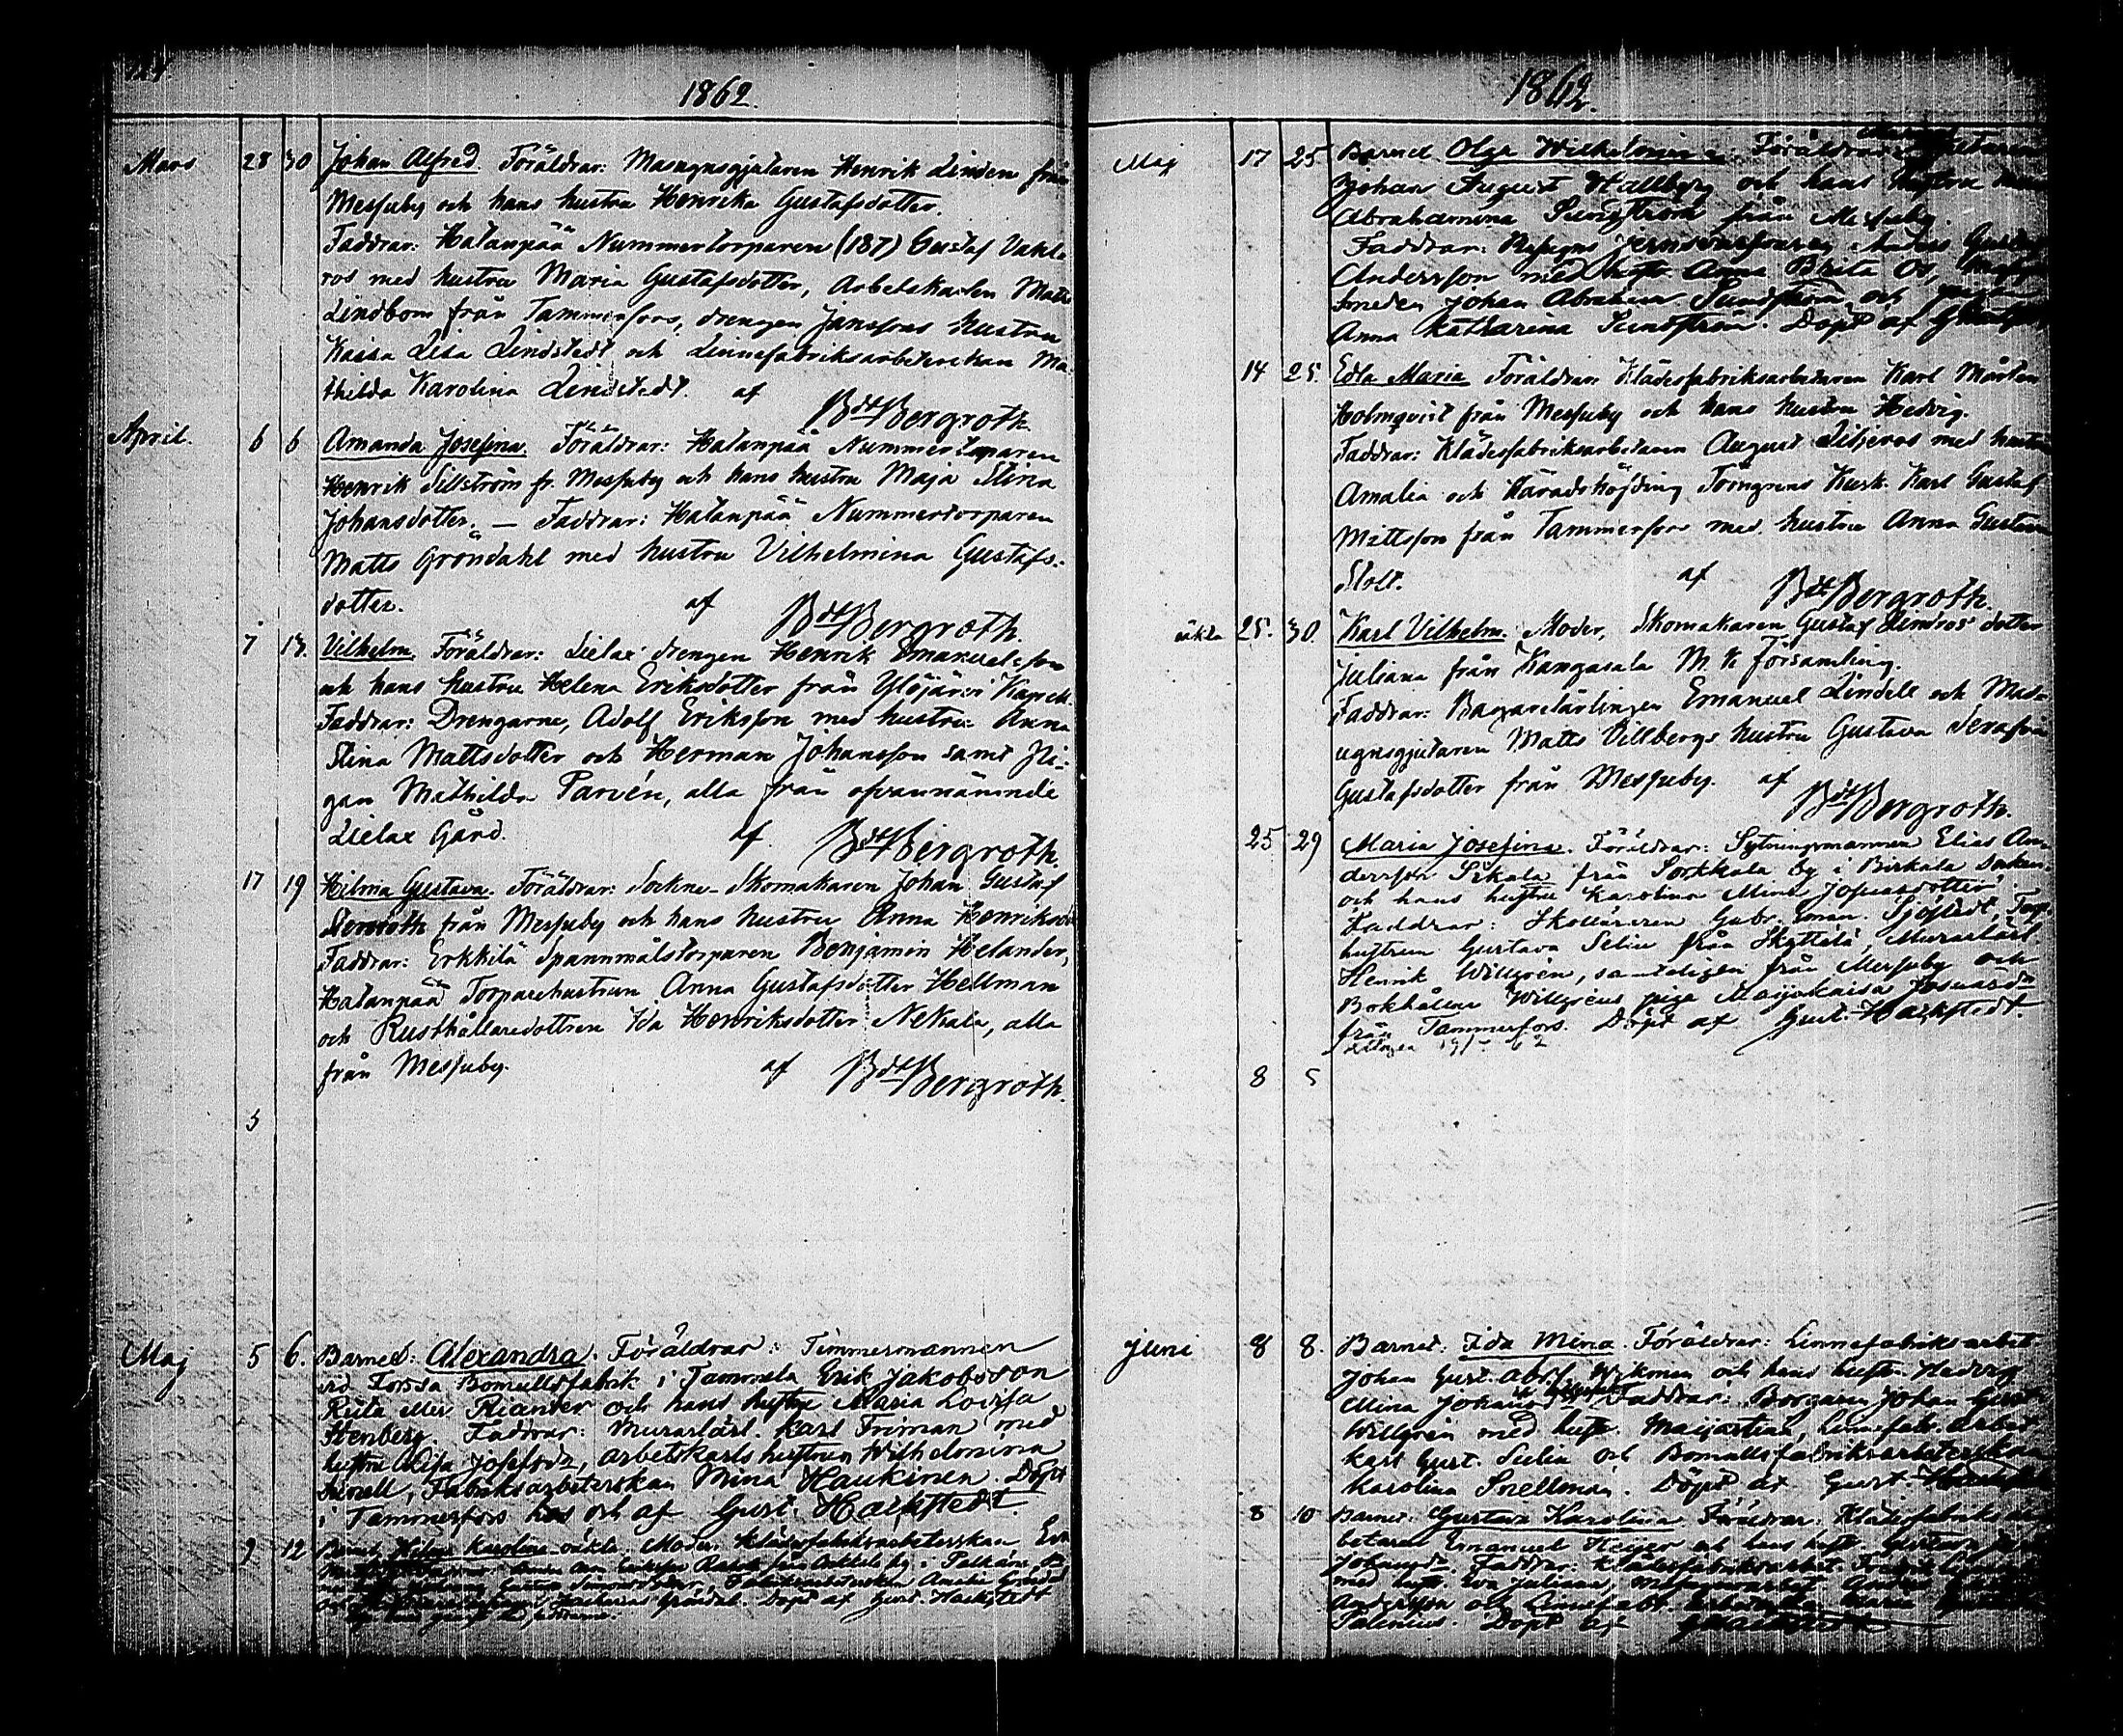 124.
1862.
Mars 28 30 Johan Alfred. Föräldrar: Masugnsgjutaren Henrik Linden från
Messuby och hans hustru Henrika Gustafsdotter.
Faddrar: Hatanpää Nummertorparen (187) Gustaf Vahl
ros med hustru Maria Gustafsdotter, Arbetskarlen Matts
Lindbom från Tammerfors, drengen Janssons hustru
Kaisa Lisa Lindstedt och Linnefabriksarbeterskan Ma-
thilda Karolina Lindstedt. af BdtBergroth.
April. 6 6 Amanda Josefina. Föräldrar: Hatanpää Nummertorparen
Henrik Sillström fr. Messuby och hans hustru Maja Stina
Johansdotter. — Faddrar: Hatanpää Nummertorparen
Matts Gröndahl med hustru Vilhelmina Gustafs-
dotter. af BdtBergroth.
7 13. Vilhelm. Föräldrar: Lielax drengen Henrik Emanuelsson
och hans hustru Helena Eriksdotter från Ylöjärvi Kapell.
Faddrar: Drengarne, Adolf Eriksson med hustru Anna
Stina Mattsdotter och Herman Johansson samt Pi-
gan Mathilda Parvén, alla från ofvannämnde
Lielax Gård. af BdtBergroth.
17 19 Hilma Gustava. Föräldrar: Sockne-Skomakaren Johan Gustaf
från Messuby och hans hustru Anna Henriksdr
Faddrar: Erkkilä Spannmålstorparen Benjamin Helander,
Hatanpää Torparehustrun Anna Gustafsdotter Hellman
och Rusthållaredottren Ida Henriksdotter Nekala, alla
från Messuby. af BdtBergroth.
5
Maj 5 6. Barnet: Alexandra. Föräldrar: Timmermannen
vid Forssa Bomullsfabrik i Tammela Erik Jakobsson
Reita eller Riander och hans hustru Maria Lovisa
Stenberg. Faddrar: Murarlärl. Karl Friman med
hustru Lisa Josefsdr, arbetskarls hustrun Wilhelmina
Fabriksarbeterskan Mina Haukinen. Döpt
i Tammerfors hos och af Gust. Hackstedt.
9 12 Barnet Hilma Karolina oäkta. Moder: Klädesfabriksarbeterskan, Eva
Gröndal. Döpt af Gust. Hackstedt
1862.
Maj 17 25 Barnet Olga Wilhelmina. Föräldrar:
Johan August Hallberg och hans hustru
Abrahamina Sundström från Messuby.
Faddrar: Gustaf
Andersson med hustr. Anna Brita
Smeden Johan Abraham Sundström och
Anna Katharina Sundström. Döpt af
14 25. Edla Maria Föräldrar: Klädesfabriksarbetaren Karl Mårten
Holmqvist från Messuby och hans hustru Hedvig.
Faddrar: Klädesfabriksarbetaren August Liljeros med hustru
Amalia och Häradshöfding Törngrens Kusk Karl Gustaf
Mattsson från Tammerfors med hustru Anna Gustava
Stolt. af BdtBergroth.
oäkta 25. 30. Karl Vilhelm. Moder, Skomakaren Gustaf Lindros' dotter
Juliana från Kangasala M. K. församling.
Faddrar: Bagarelärlingen Emanuel Lindell och Mas-
ugnsgjutaren Matts Villbergs hustru Gustava Serafina
Gustafsdotter från Messuby. af BdtBergroth.
25 29 Maria Josefina. Föräldrar: Sytningsmannen Elias An-
dersson Sikala från Sorkkala by i Birkala Socken
och hans hustru Karolina Mina Josuasdotter.
Faddrar: Skolläraren Gabr. Eman. Sjöstedt, Torp.
hustrun Gustava Selin från Skyttälä, Murarlärl.
Henrik Willgrén, samteligen från Messuby och
Bokhållare Willgréns piga Maijakaisa Josuasdr
från Tammerfors. Döpt af Gust. Hackstedt.
8 5
Juni 8 8. Barnet: Ida Mina. Föräldrar: Linnefabriks arbet.
Johan Gust. Abrs. Wikman och hans hustr. Hedvig
Mina Faddrar: Borgaren Johan Gust.
Willgrén med hustr. Maijastina, Linnefabr. arbet.
Karl Gust. Selin och Bomullsfabriksarbeterskan
Karolina Snellman. Döpt af Gust. Hackstedt
8 10 Barnet: Gustava Karolina. Föräldrar: Klädesfabriks ar-
betaren Emanuel och hans hustr. Gustava
Faddrar: Klädesfabriksarbet. Fredrik
med hustr. Eva Juliana,
Andersson och Linnefabr. Maria
Döpt af